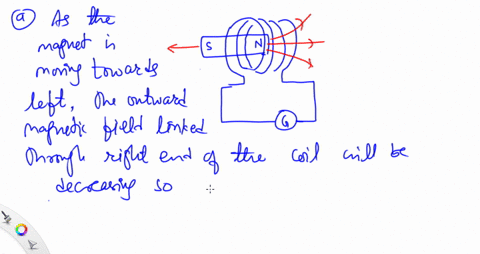 (a) As the
magnet is
moving towards
left, the outward
magnetic field linked
through right end of the coil will be
decreasing so
S N
G